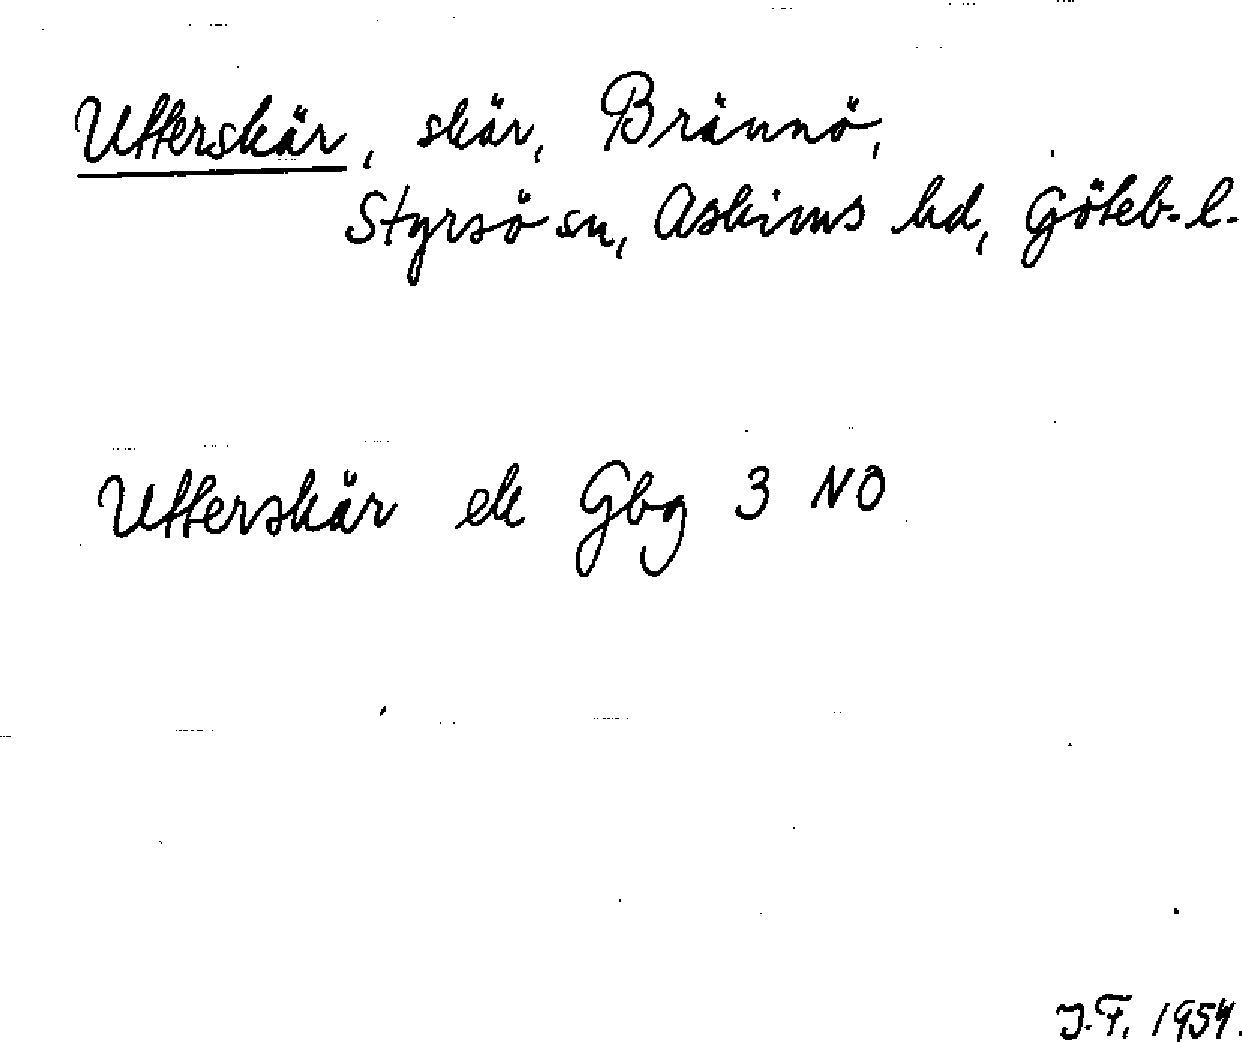 Utterskär, skär, Brännö,
Styrsö sn, Askims hd, Göteb. l.
Utterskär ek Gbg 3 NO
J.F. 1954.